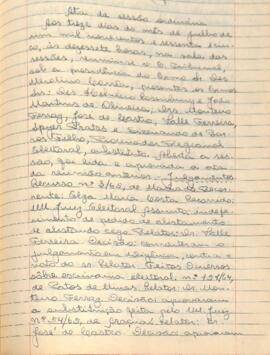 Ata da sessão ordinária
Aos treze dias do mês de julho de
um mil novecentos e sessenta e cin-
co, às dezessete horas, na sala das
sessões, reuniu-se o E. Tribunal,
sob a presidência do Exmo Sr. Des.
Merolino Corrêa, presentes os Exmos
Srs. Des. Helvécio Rosenburg e João
Martins de Oliveira, Drs. Monteiro
Ferraz, José de Castro, Valle Ferreira,
Prates e de Bar-
ros Filho, Procurador Regional
Eleitoral, substituto. Aberta a ses-
são, foi lida e aprovada a ata
da reunião anterior. Julgamentos
Recurso nº 3/65, de Machado. Recor-
rente: Olga Maria Costa. Recorrido:
MM. Juiz Eleitoral. Assunto: inde-
ferimento de pedido de alistamento
de alistando cego. Relator: Dr. Valle
Ferreira. Decisão: converteram o
julgamento em diligência, contra o
voto do sr. Relator. Feitos diversos
sôbre escrivania eleitoral. nº 151/64,
de Patos de Minas. Relator: Dr. Mon-
teiro Ferraz. Decisão: aprovaram
a substituição feita pelo MM. Juiz
nº 04/65, de Relator: Dr.
José de Castro. Decisão: aprovaram